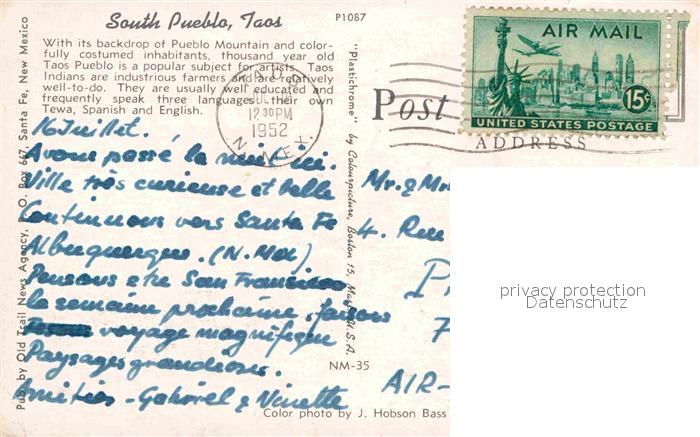 South Pueblo, Taos
P1087
With its backdrop of Pueblo Mountain and color-
fully costumed inhabitants, thousand year old
Taos Pueblo is a popular subject for artists. Taos
Indians are industrious farmers and are relatively
well-to-do. They are usually well educated and
frequently speak three languages, their own
Tewa, Spanish and English.
Pub. by Old Trail News Agency, P. O. Box 667, Santa Fe, New Mexico
"Plastichrome" by Colourpicture, Boston 15, Mass., U.S.A.
16 Juillet.
Avons passé la nuit ici.
Ville très curieuse et belle
Continuons vers Santa Fe
Albuquerque. (N. Mex)
Pensons etre San Francisco
la semaine prochaine, faisons
voyage magnifique
Paysages grandioses.
Amitiés - Gabriel & Ninette
NM-35
Color photo by J. Hobson Bass
TAOS
12 30 PM
1952
N. MEX.
AIR MAIL
15¢
UNITED STATES POSTAGE
Post
ADDRESS
Mr. & Mr
4. Rue
P
AIR-
privacy protection
Datenschutz